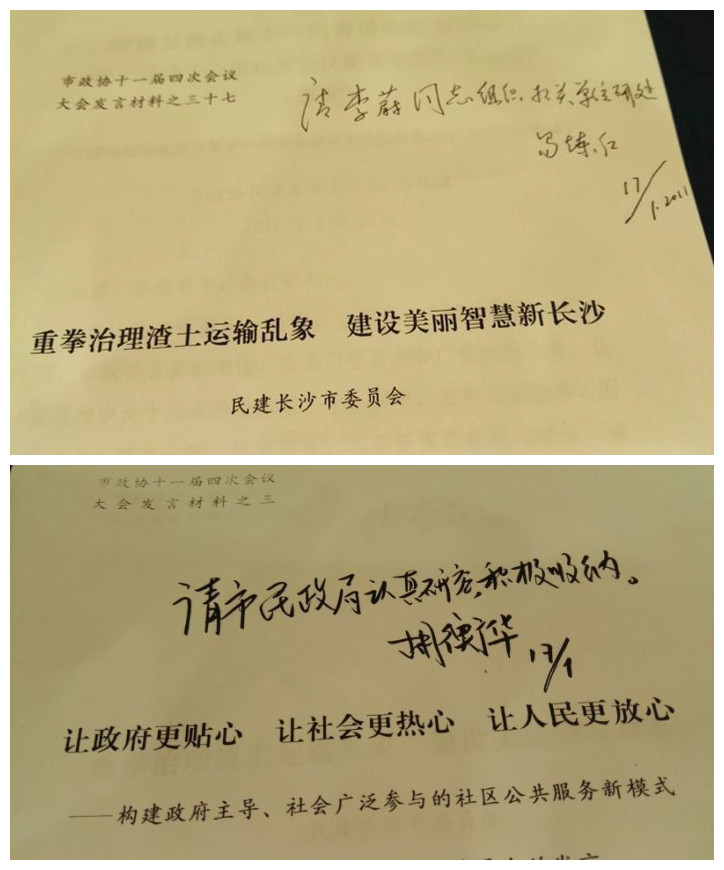 市政协十一届四次会议
大会发言材料之三十七
请李蔚同志组织相关单位研处
易炼红
17/1.2011
重拳治理渣土运输乱象 建设美丽智慧新长沙
民建长沙市委员会
市政协十一届四次会议
大会发言材料之三
请市民政局认真研究,积极吸纳。
胡衡华 17/1
让政府更贴心 让社会更热心 让人民更放心
——构建政府主导、社会广泛参与的社区公共服务新模式